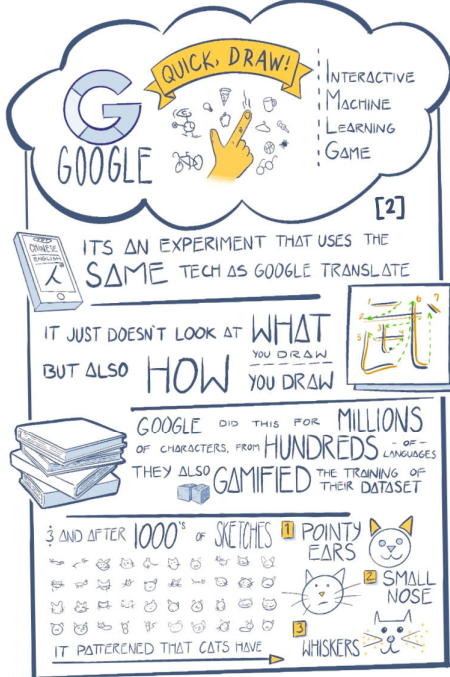 QUICK, DRAW!
GOOGLE
INTERACTIVE
MACHINE
LEARNING
GAME
[2]
CHINESE
ENGLISH
人
ITS AN EXPERIMENT THAT USES THE
SAME TECH AS GOOGLE TRANSLATE
IT JUST DOESN'T LOOK AT WHAT
YOU DRAW
BUT ALSO HOW YOU DRAW
1
2
3
5
6
7
GOOGLE DID THIS FOR MILLIONS
OF CHARACTERS, FROM HUNDREDS - OF - LANGUAGES
THEY ALSO GAMIFIED THE TRAINING OF
THEIR DATASET
& AND AFTER 1000'S OF SKETCHES
1 POINTY
EARS
2 SMALL
NOSE
3
WHISKERS
IT PATTERENED THAT CATS HAVE